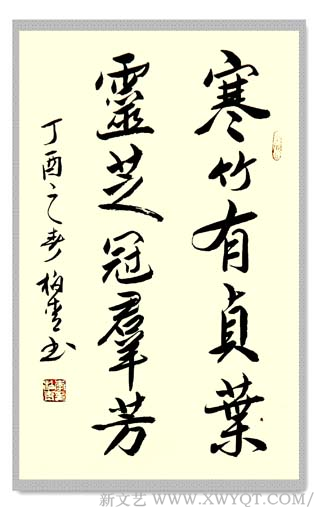 寒竹有貞葉
靈芝冠羣芳
丁酉之春 梅雪书
新文艺 WWW.XWYQT.COM/